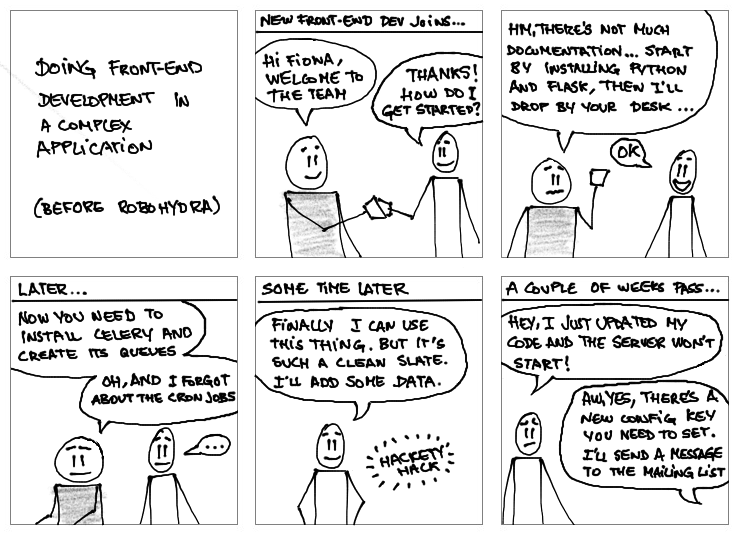 DOING FRONT-END
DEVELOPMENT IN
A COMPLEX
APPLICATION
(BEFORE ROBOHYDRA)
NEW FRONT-END DEV JOINS...
HI FIONA,
WELCOME TO
THE TEAM
THANKS!
HOW DO I
GET STARTED?
HM, THERE'S NOT MUCH
DOCUMENTATION... START
BY INSTALLING PYTHON
AND FLASK, THEN I'LL
DROP BY YOUR DESK ...
OK
LATER...
NOW YOU NEED TO
INSTALL CELERY AND
CREATE ITS QUEUES
OH, AND I FORGOT
ABOUT THE CRON JOBS
...
SOME TIME LATER
FINALLY I CAN USE
THIS THING. BUT IT'S
SUCH A CLEAN SLATE.
I'LL ADD SOME DATA.
HACKETY
HACK
A COUPLE OF WEEKS PASS...
HEY, I JUST UPDATED MY
CODE AND THE SERVER WON'T
START!
AW, YES, THERE'S A
NEW CONFIG KEY
YOU NEED TO SET.
I'LL SEND A MESSAGE
TO THE MAILING LIST